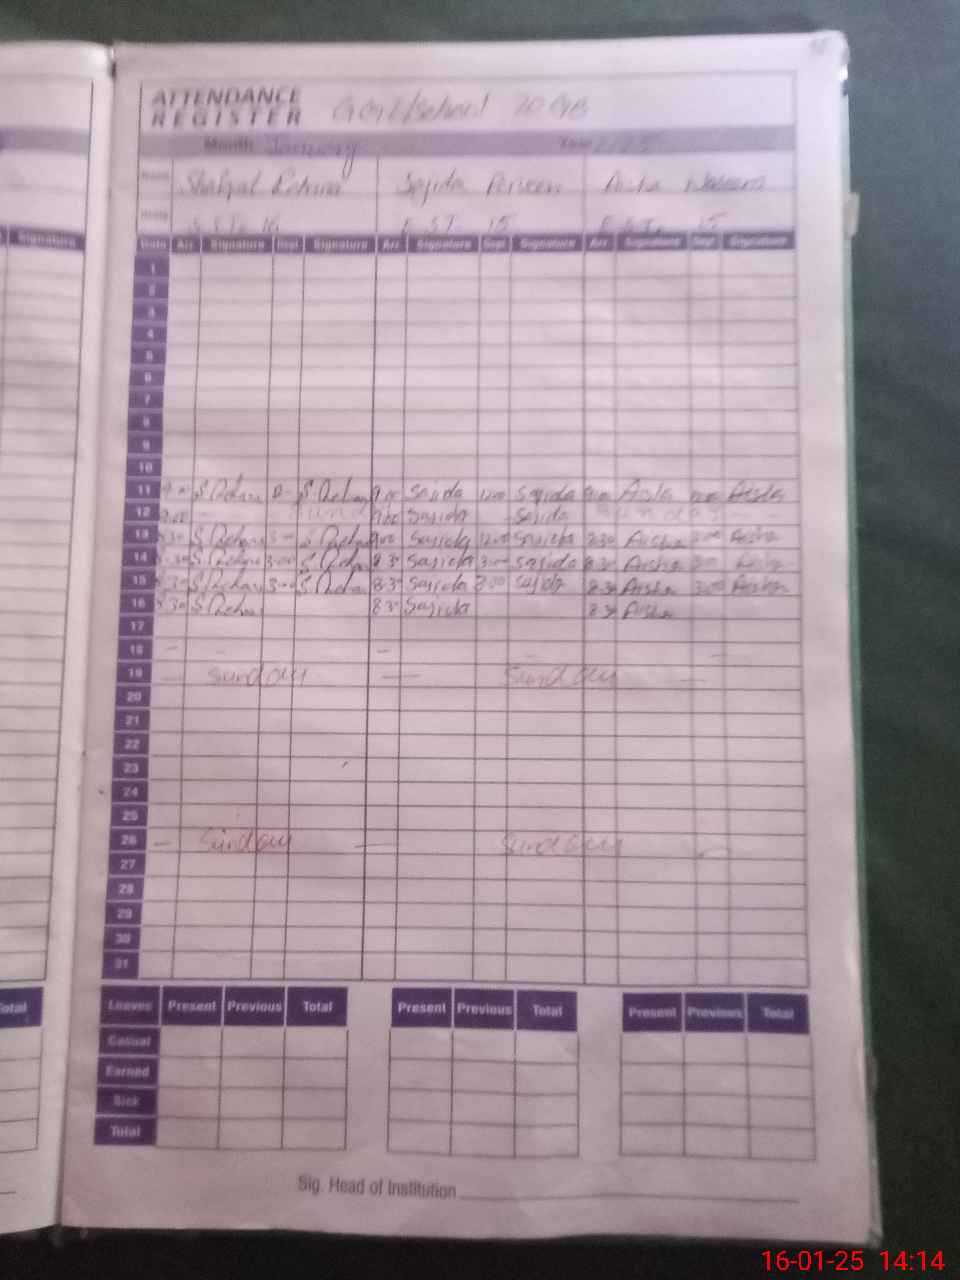 ATTENDANCE
REGISTER
Month January Year 2025
Name Sajida Perveen Aisha
E S T. 15 E S T. 15
Signature
Date Arr. Signature Dep. Signature Arr. Signature Dep. Signature Arr. Signature Dep. Signature
1
2
3
4
5
6
7
8
9
10
11 S Rehan S Rehan 9 00 Sajida 12 00 Sajida Aisha Aisha
12 9 00 Sunday 9 00 Sajida Sajida Sunday
13 8 30 S Rehan S Rehan 9 00 Sajida 12 00 Sajida 8 30 Aisha Aisha
14 8 30 S Rehan 3 00 S Rehan 8 30 Sajida 3 00 Sajida 8 30 Aisha Aisha
15 8 30 S Rehan 3 00 S Rehan 8 30 Sajida 3 00 Sajida 8 30 Aisha 3 00 Aisha
16 8 30 S Rehan 8 30 Sajida 8 30 Aisha
17
18
19 Sunday Sunday
20
21
22
23
24
25
26 Sunday Sunday
27
28
29
30
31
Total Leaves Present Previous Total Present Previous Total Present Previous Total
Casual
Earned
Sick
Total
Sig. Head of Institution
16-01-25 14:14